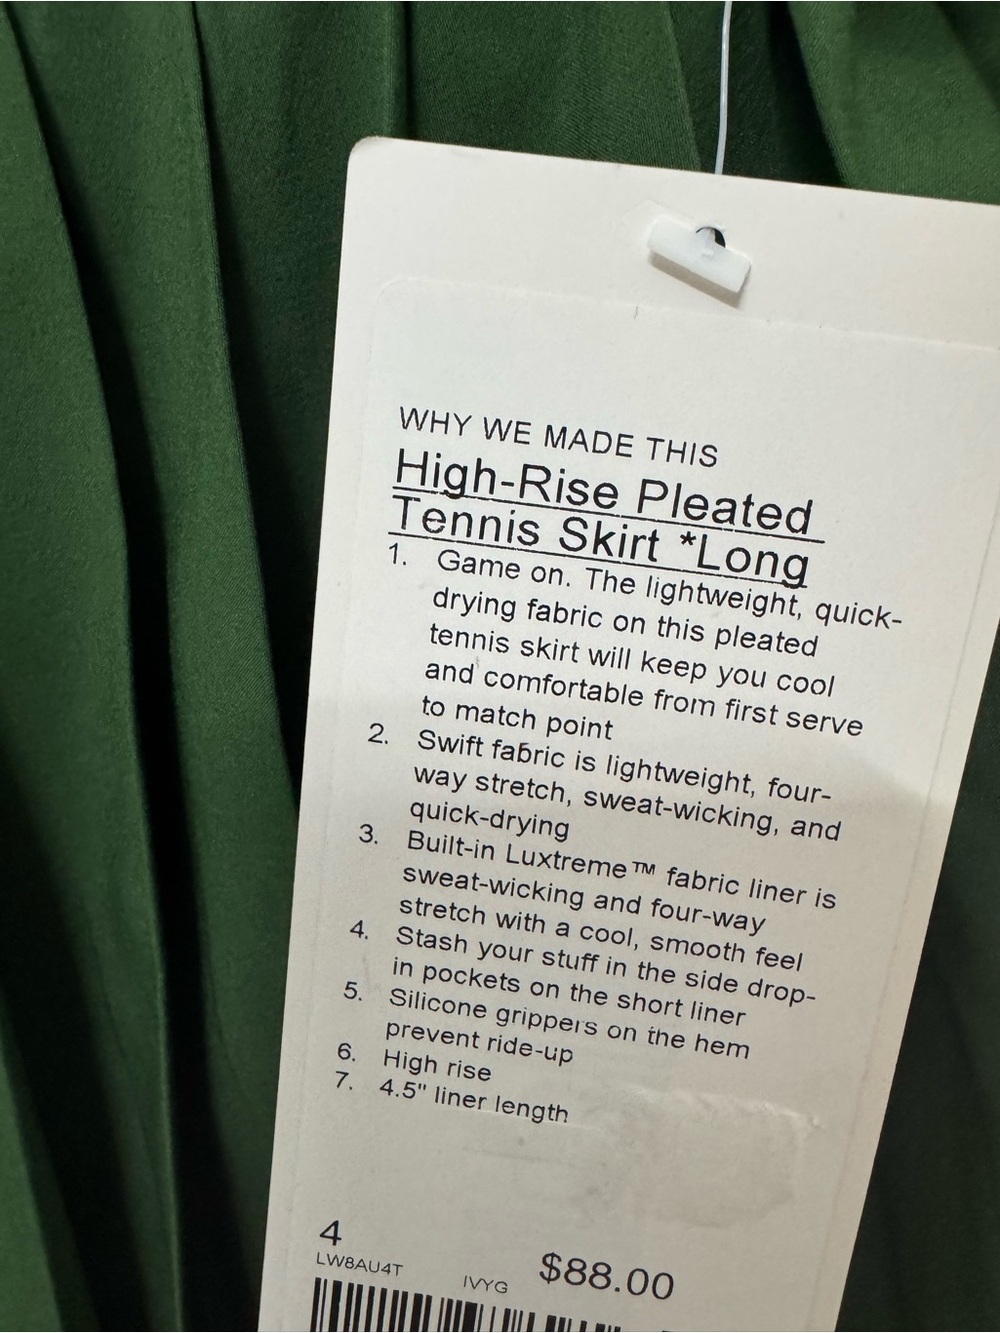 WHY WE MADE THIS
High-Rise Pleated
Tennis Skirt *Long
1. Game on. The lightweight, quick-
drying fabric on this pleated
tennis skirt will keep you cool
and comfortable from first serve
to match point
2. Swift fabric is lightweight, four-
way stretch, sweat-wicking, and
quick-drying
3. Built-in Luxtreme™ fabric liner is
sweat-wicking and four-way
stretch with a cool, smooth feel
4. Stash your stuff in the side drop-
in pockets on the short liner
5. Silicone grippers on the hem
prevent ride-up
6. High rise
7. 4.5" liner length
4
LW8AU4T IVYG $88.00